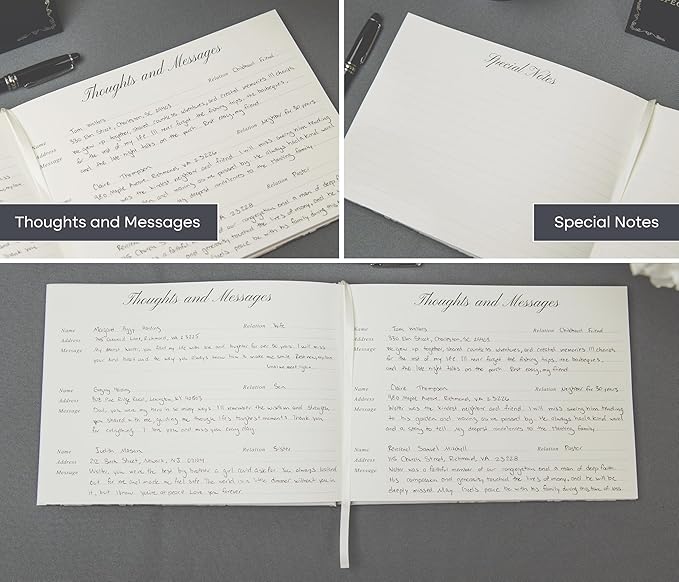 Thoughts and Messages
Relation Childhood Friend
Name Tom Walters
Address 330 Elm Street, Charleston, SC 29403
Message We grew up together, shared countless adventures, and created memories I'll cherish
for the rest of my life. I'll never forget the fishing trips, the barbeques,
and the late night talks on the porch. Rest easy, my friend.
Relation Neighbor for 30 years
Name Claire Thompson
Address 980 Maple Avenue, Richmond, VA 23226
Message was the kindest neighbor and friend. I will miss seeing him tending
and waving as we passed by. He always had a kind word
my deepest condolences to the family.
Relation Pastor
Samuel Mitchell
115 Church Street, Richmond, VA 23228
was a faithful member of our congregation and a man of deep
and generosity touched the lives of many, and he
peace be with his family during this
Thoughts and Messages
Special Notes
Special Notes
Thoughts and Messages
Name Margaret "Peggy" Relation Wife
Address Richmond, VA 23225
Message My dearest Walter, you filled my life with love and laughter for over 50 years. I will miss
your kind heart and the way you always knew how to make me smile. Rest now, my love,
until we meet again.
Name Gregory Relation Son
Address Pine Ridge Road, Lexington, KY
Message Dad, you were my hero in so many ways. I'll remember the wisdom and strength
you shared with me, guiding me through life's toughest moments. Thank you
for everything. I love you and miss you every day.
Name Judith Relation Sister
Address 212 Bank Street, Newark, NJ 07104
Message Walter, you were the best big brother a girl could ask for. You always looked
out for me and made me feel safe. The world is a little dimmer without you in
it, but I know you're at peace. Love you forever.
Thoughts and Messages
Name Tom Walters Relation Childhood Friend
Address 330 Elm Street, Charleston, SC 29403
Message We grew up together, shared countless adventures, and created memories I'll cherish
for the rest of my life. I'll never forget the fishing trips, the barbeques,
and the late night talks on the porch. Rest easy, my friend.
Name Claire Thompson Relation Neighbor for 30 years
Address 980 Maple Avenue, Richmond, VA 23226
Message Walter was the kindest neighbor and friend. I will miss seeing him tending
his garden and waving as we passed by. He always had a kind word
and a story to tell. My deepest condolences to the family.
Name Reverend Samuel Mitchell Relation Pastor
Address 115 Church Street, Richmond, VA 23228
Message Walter was a faithful member of our congregation and a man of deep faith.
His compassion and generosity touched the lives of many, and he will be
deeply missed. May God's peace be with his family during this time of loss.